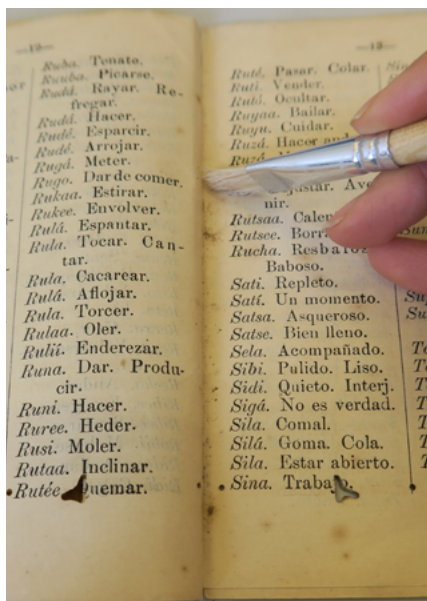 —12—
Ruba. Tonato.
Ruuba. Picarse.
Rudá. Rayar. Re-
fregar.
Rudá. Hacer.
Rudé. Esparcir.
Rudé. Arrojar.
Rugá. Meter.
Rugo. Dar de comer.
Rukaa. Estirar.
Rukee. Envolver.
Rulá. Espantar.
Rula. Tocar. Can-
tar.
Rula. Cacarear.
Rulá. Aflojar.
Rula. Torcer.
Rulaa. Oler.
Rulií. Enderezar.
Runa. Dar. Produ-
cir.
Runi. Hacer.
Ruree. Heder.
Rusi. Moler.
Rutaa. Inclinar.
Rutée
—13—
Ruté. Pasar. Colar.
Ruti. Vender.
Rutó. Ocultar.
Ruyaa. Bailar.
Ruyu. Cuidar.
Ruzá. Hacer
Ave
nir.
Rutsaa.
Rutsee.
Rucha.
Baboso.
Sati. Repleto.
Satí. Un momento.
Satsa. Asqueroso.
Satse. Bien lleno.
Sela. Acompañado.
Sibi. Pulido. Liso.
Sidi. Quieto. Interj.
Sigá. No es verdad.
Sila. Comal.
Silá. Goma. Cola.
Sila. Estar abierto.
Sina.